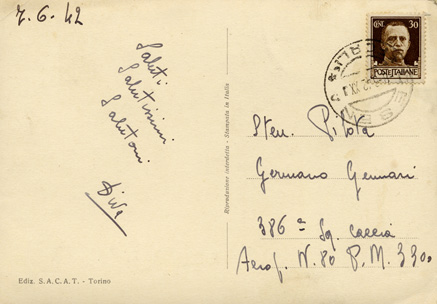 7.6.42
Saluti
Salutissimi
Salutoni
CENT. 30
POSTE ITALIANE
Sten. Pilota
Germano Gennari
386ª Sq. Caccia
Aerop. N. 80 P. M. 3300
Riproduzione interdetta - Stampata in Italia
Ediz. S.A.C.A.T. - Torino